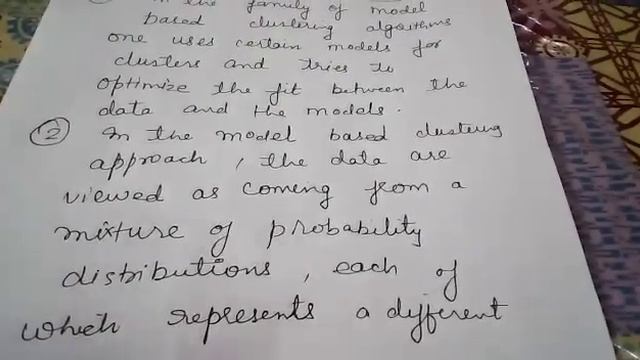 In the family of model
based clustering algorithms
one uses certain models for
clusters and tries to
optimize the fit between the
data and the models.
② In the model based clustering
approach, the data are
viewed as coming from a
mixture of probability
distributions, each of
which represents a different